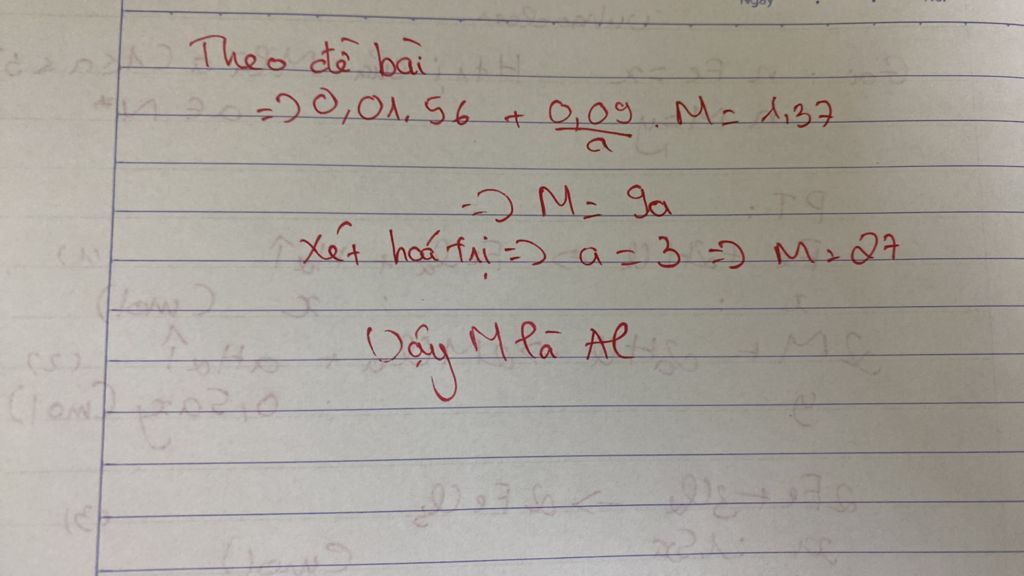 Theo đề bài
=> 0,01.56 + 0,09/a . M = 1,37
=> M = 9a
Xét hoá trị => a = 3 => M = 27
Vậy M là Al